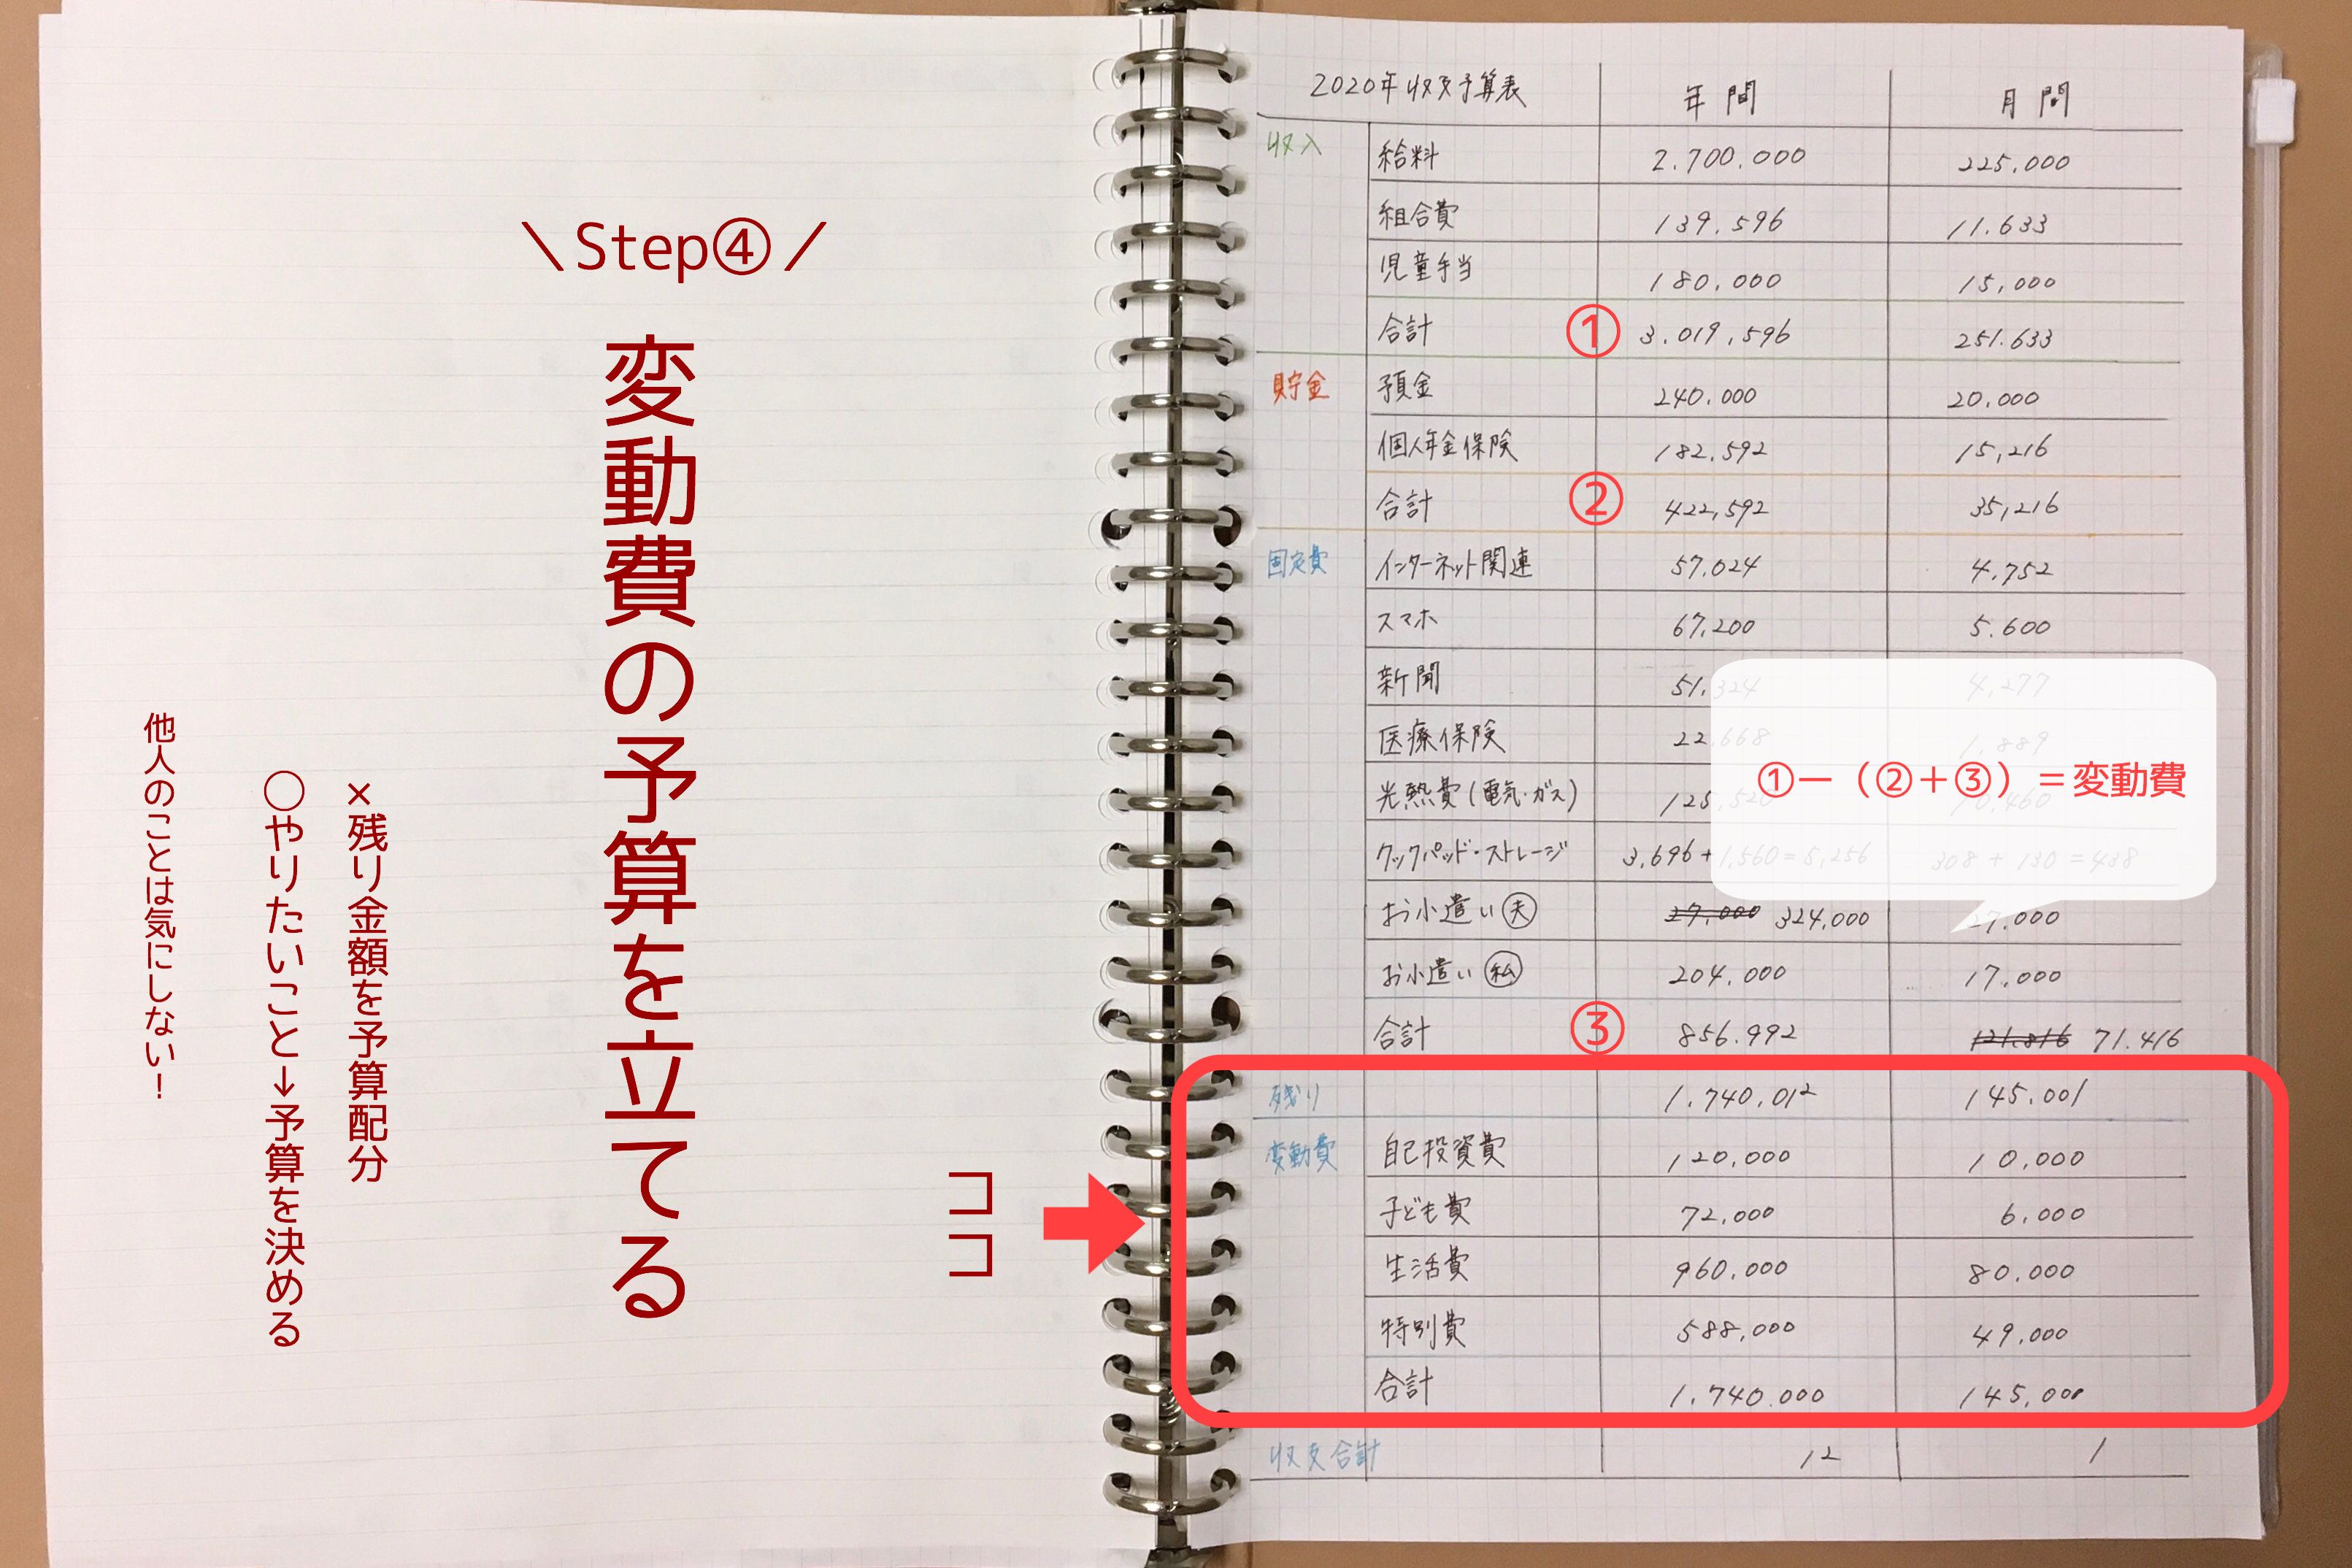 ＼Step④／
変動費の予算を立てる
×残り金額を予算配分
○やりたいこと→予算を決める
他人のことは気にしない！
ココ
2020年収支予算表 年間 月間
収入 給料 2.700.000 225.000
組合費 139.596 11.633
児童手当 180.000 15,000
合計 ① 3.019,596 251.633
貯金 預金 240.000 20.000
個人年金保険 182.592 15,216
合計 ② 422,592 35,216
固定費 インターネット関連 57.024 4.752
スマホ 67,200 5.600
新聞 51.324 4,277
医療保険 22.668 1.889
光熱費(電気・ガス) 125,520 10,460
①ー（②＋③）＝変動費
クックパッド・ストレージ 3,696+1,560=5,256 308 + 130 = 438
お小遣い㊛夫 27,000 324,000 27.000
お小遣い 私 204.000 17,000
合計 ③ 856.992 121.816 71.416
残り 1.740.012 145.001
変動費 自己投資費 120,000 10,000
子ども費 72,000 6,000
生活費 960,000 80.000
特別費 588,000 49,000
合計 1.740.000 145,000
収支合計 12 1